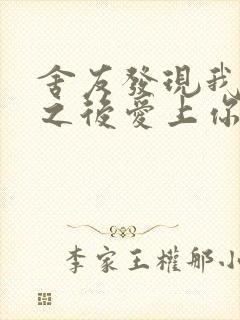 舍友發現我
之後愛上你
李家王權那小